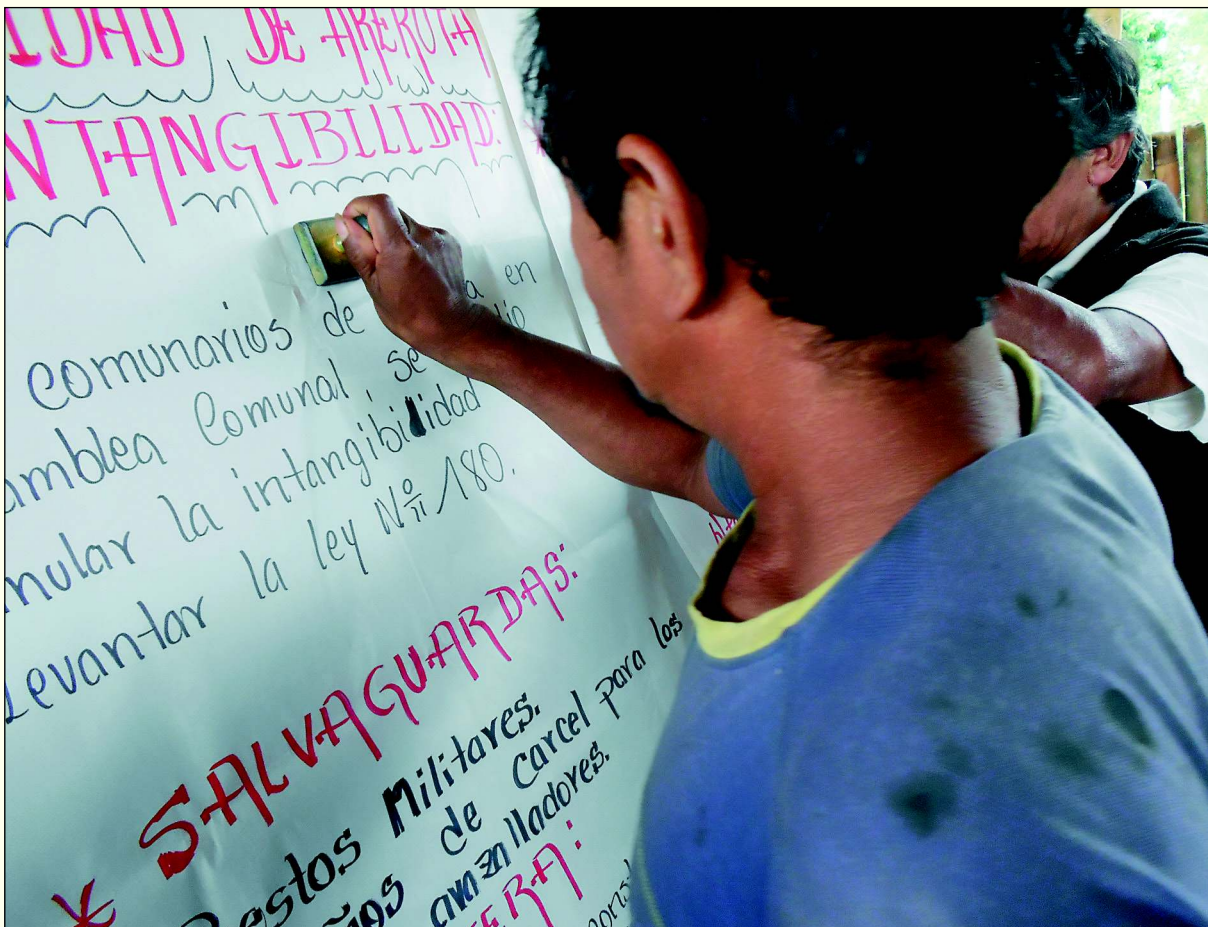 IDAD DE AREROTA
NTANGIBILIDAD:
comunarios de a en
amblea Comunal, se tio
nular la intangibilidad
Levantar la ley Nº 180.
* SALVAGUARDAS:
Postos Militares.
ños de Carcel para los
avazalladores.
ERA: